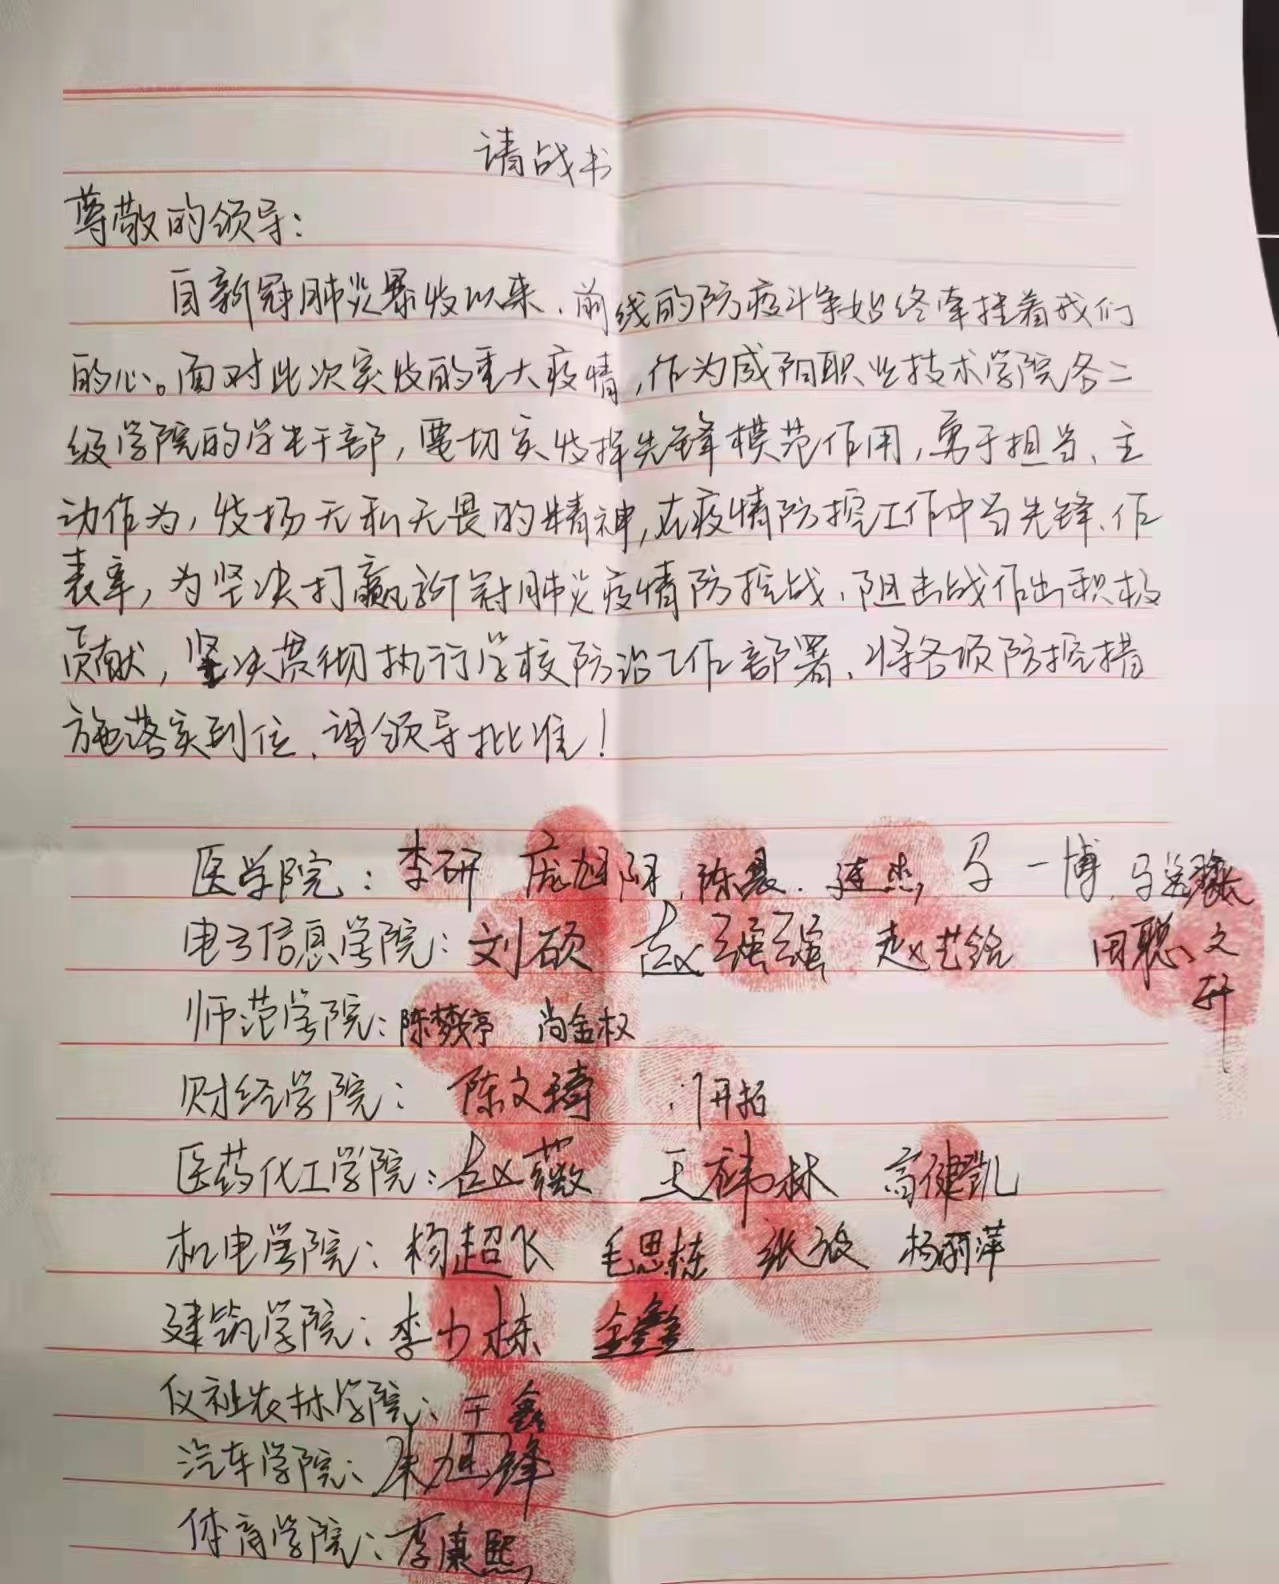 请战书
尊敬的领导：
自新冠肺炎暴发以来，前线的防疫斗争始终牵挂着我们
的心。面对此次突发的重大疫情，作为咸阳职业技术学院各二
级学院的学生干部，要切实发挥先锋模范作用，勇于担当、主
动作为，发扬无私无畏的精神，在疫情防控工作中当先锋、作
表率，为坚决打赢新冠肺炎疫情防控战、阻击战作出积极
贡献，坚决贯彻执行学校防治工作部署、将各项防控措
施落实到位、请领导批准！
医学院：李研 庞旭阳、陈晨、连杰，马一博、
电子信息学院：刘硕 赵强强 赵艺绘 田聪、文轩
师范学院：陈梦婷 尚金权
财经学院：陈文琦 闫拓
医药化工学院：赵薇 王祎林 高健凯
机电学院：杨超飞 毛思栋 张波 杨丽萍
建筑学院：李力栋 金鑫
仪祉农林学院：王鑫
汽车学院：朱旭锋
体育学院：李康熙